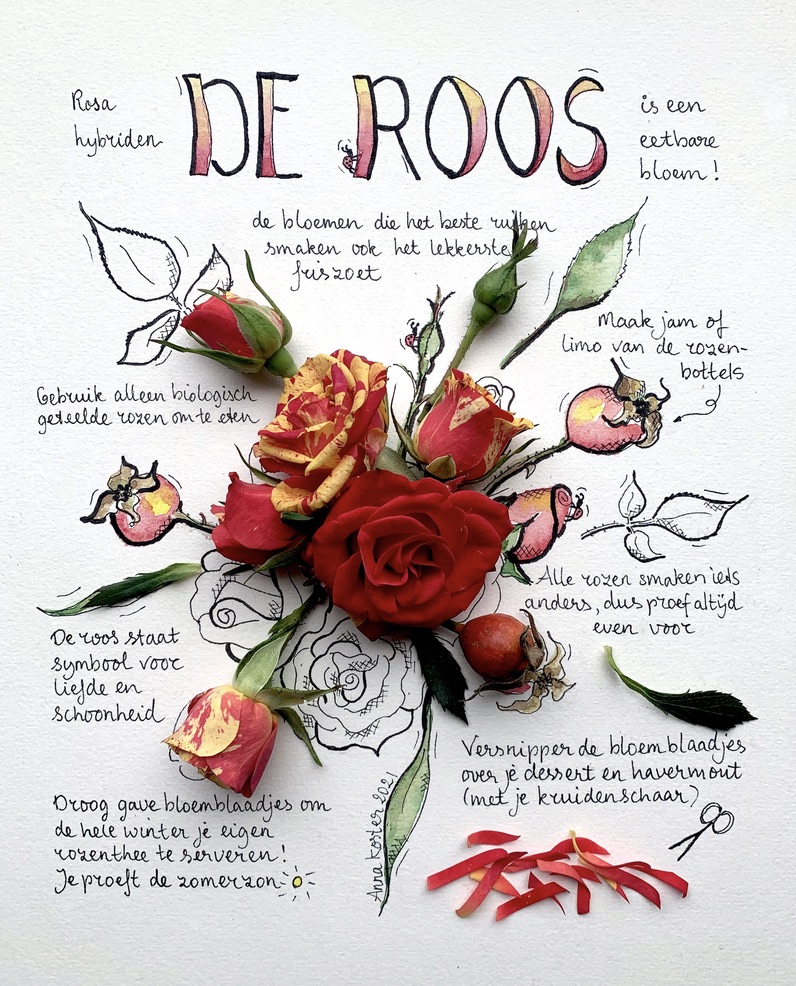 Rosa
hybriden
DE ROOS
is een
eetbare
bloem!
de bloemen die het beste ruiken
smaken ook het lekkerste
friszoet
Maak jam of
limo van de rozen-
bottels
Gebruik alleen biologisch
geteelde rozen om te eten
Alle rozen smaken iets
anders, dus proef altijd
even voor
De roos staat
symbool voor
liefde en
schoonheid
Versnipper de bloemblaadjes
over je dessert en havermout
(met je kruidenschaar)
Droog gave bloemblaadjes om
de hele winter je eigen
rozenthee te serveren!
Je proeft de zomerzon
Anna Koster 2021